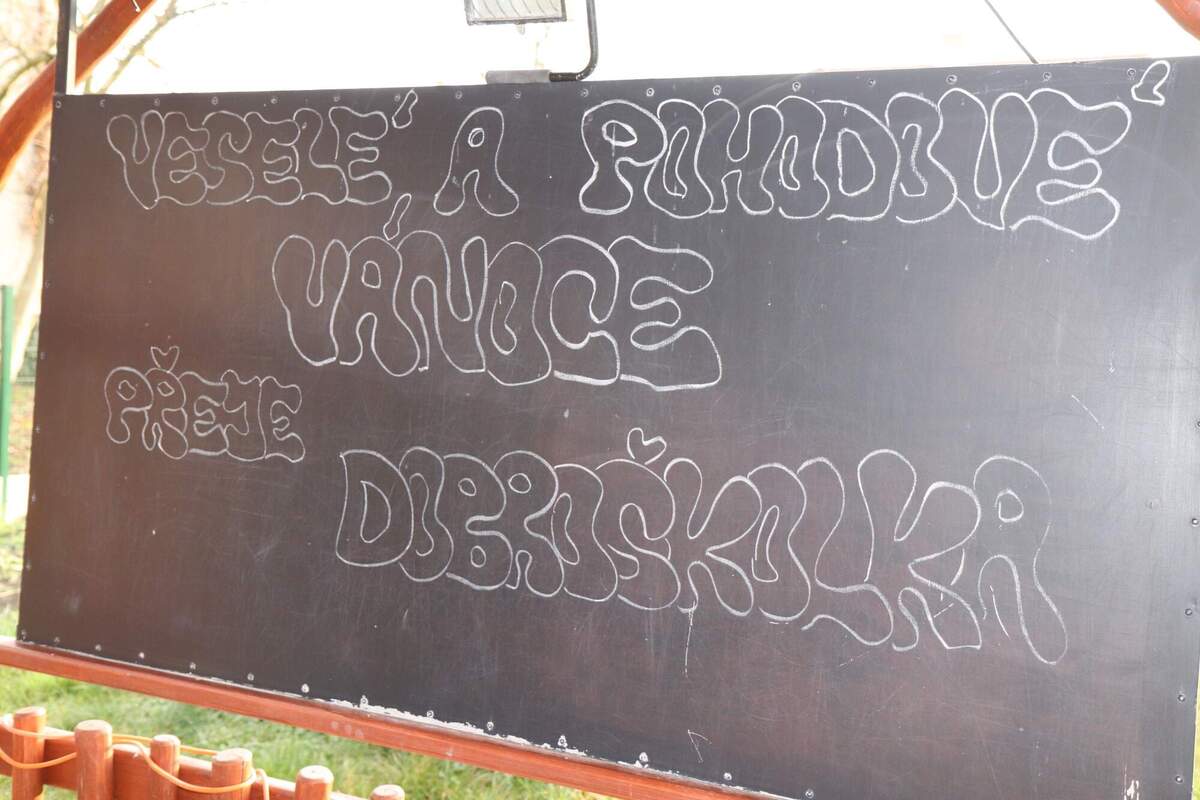 VESELÉ A POHODOVÉ
VÁNOCE
PŘEJE
DOBROŠKOLKA